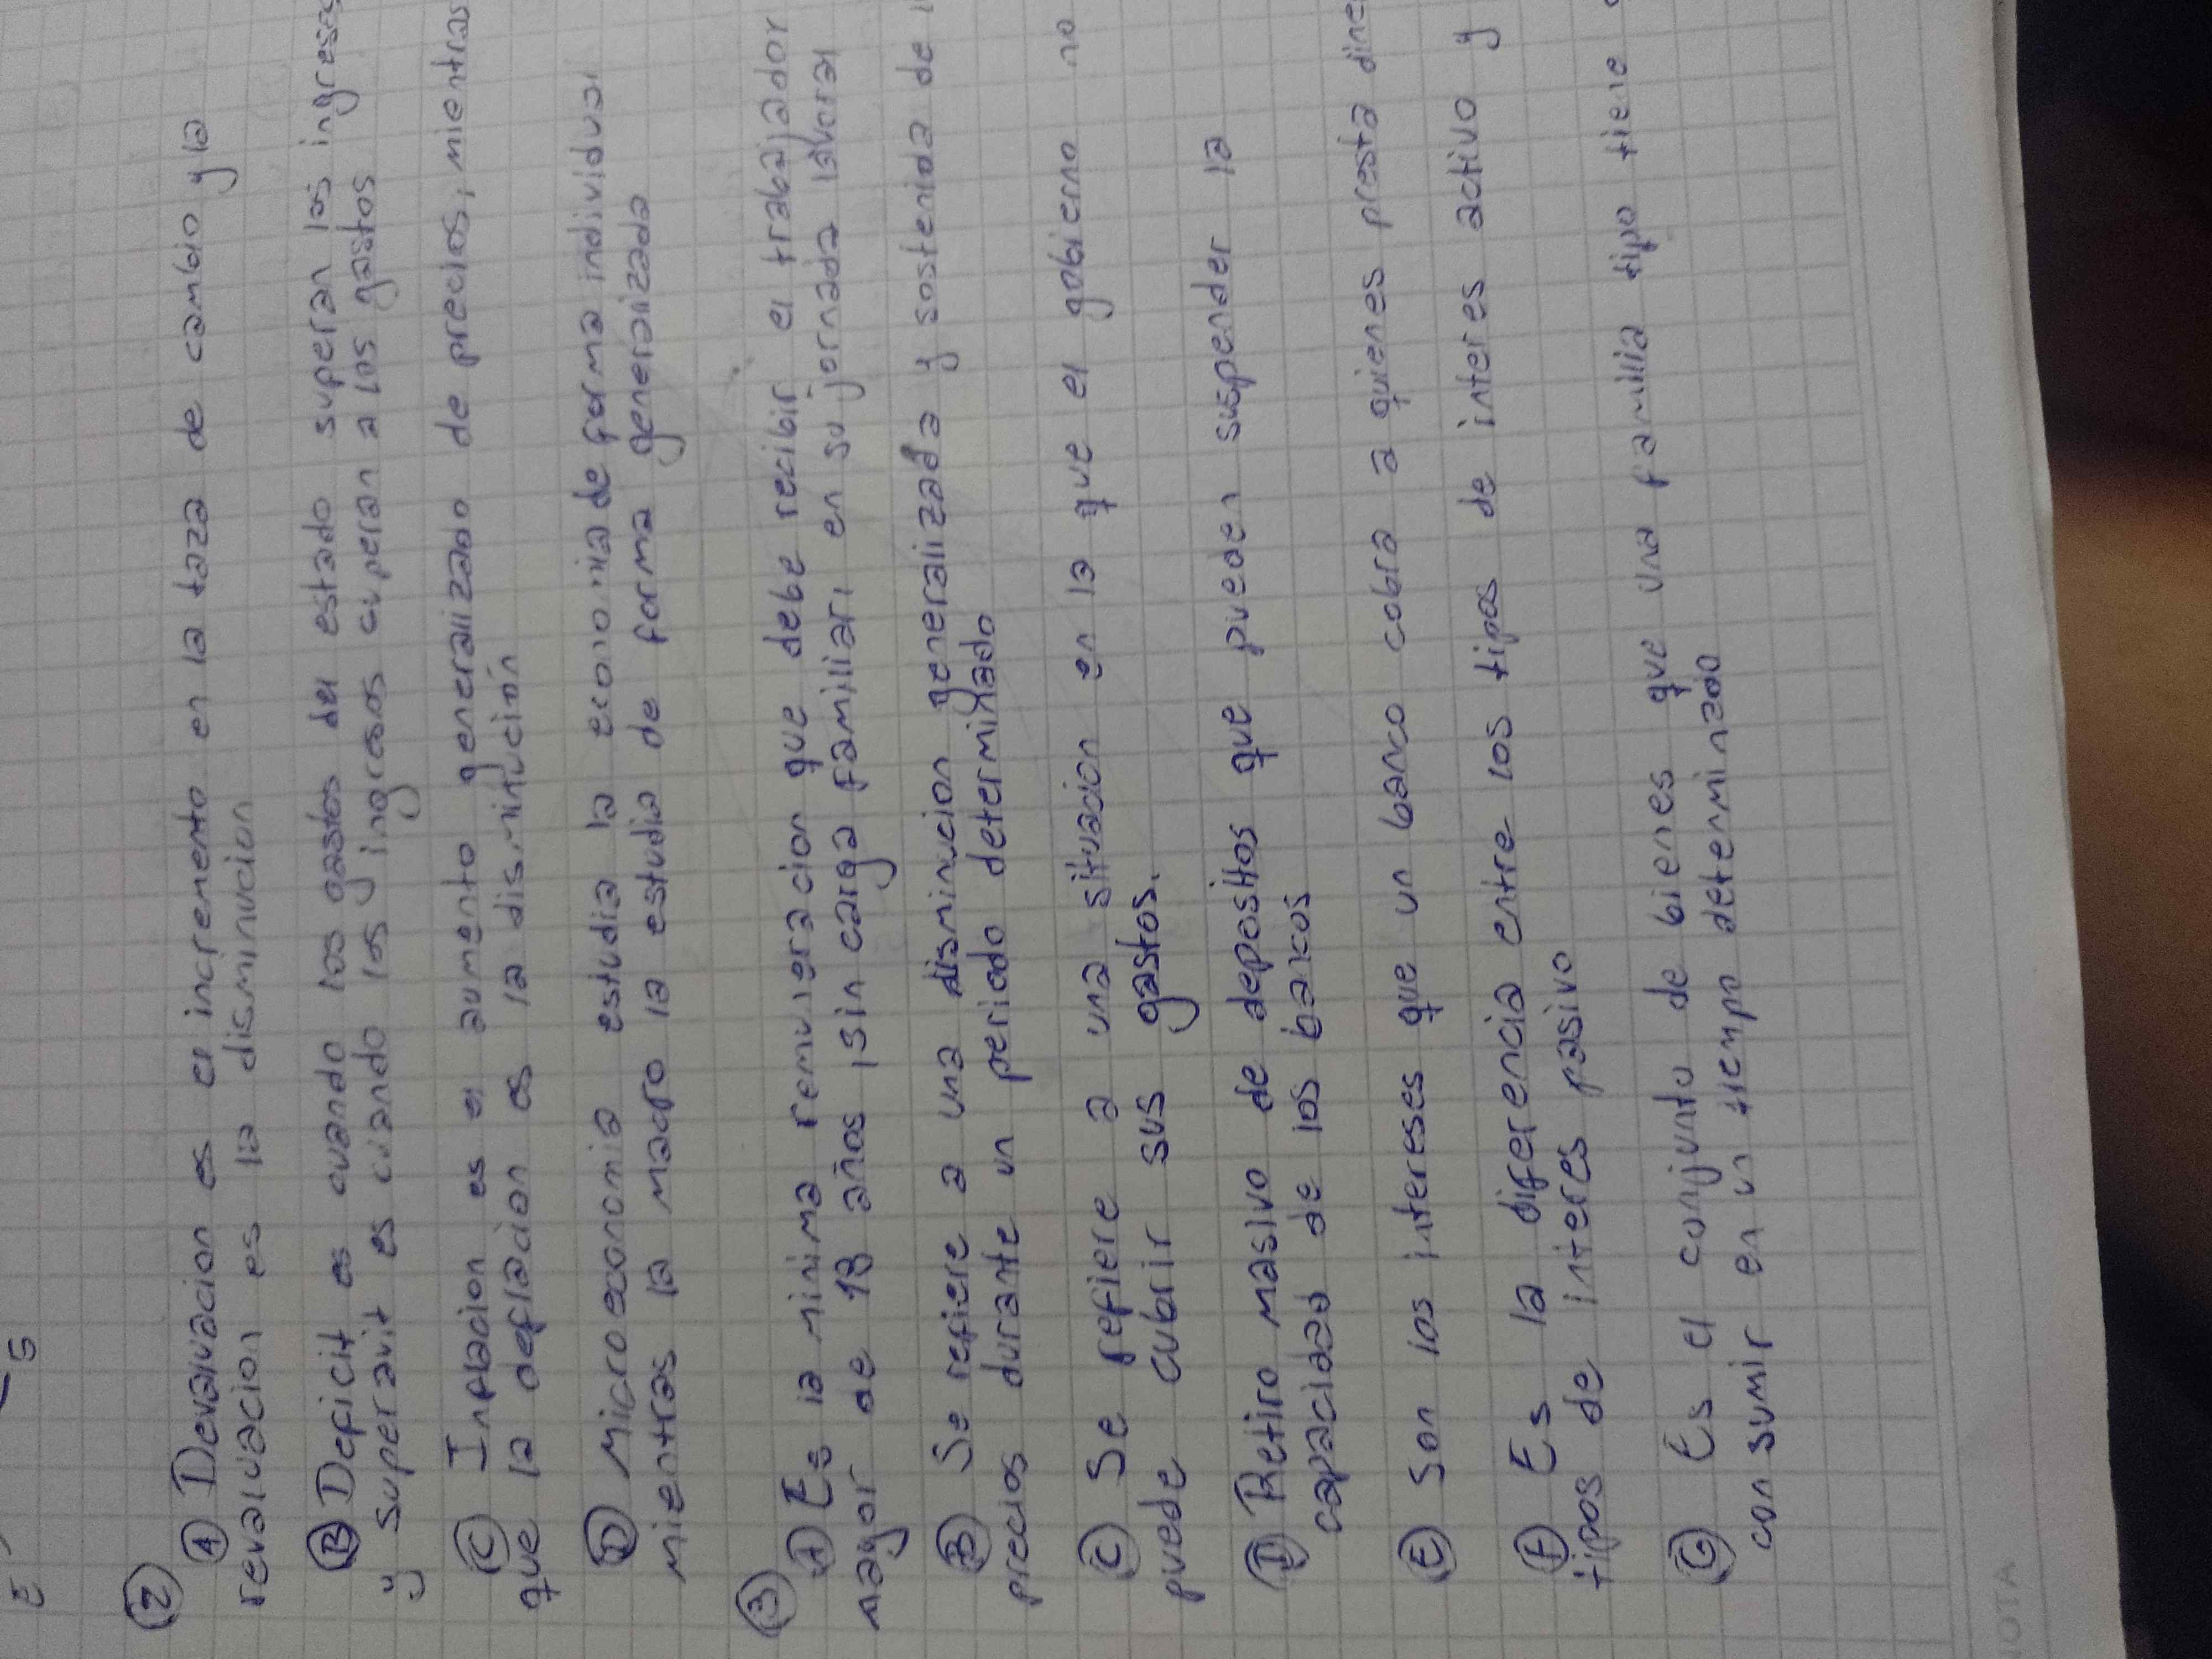 ②
Ⓐ Devaluacion es el incremento en la taza de cambio y la
revaluacion es la disminucion
Ⓑ Deficit es cuando los gastos del estado superan los ingresos
y superavit es cuando los ingresos cuperan a los gastos
Ⓒ Inflacion es el aumento generalizado de precios, mientras
que la deflacion es la disminución
Ⓓ Microeconomia estudia la economia de forma individual
mientras la macro la estudia de forma generalizada
③
Ⓐ Es la minima remuneracion que debe recibir el trabajador
mayor de 18 años, sin carga familiar, en su jornada lavoral
Ⓑ Se refiere a una disminucion generalizada y sostenida de
precios durante un periodo determinado
Ⓒ Se refiere a una situacion en la que el gobierno no
puede cubrir sus gastos.
Ⓓ Retiro masivo de depositos que pueden suspender la
capacidad de los bancos
Ⓔ Son los intereses que un banco cobra a quienes presta dine
Ⓕ Es la diferencia entre los tipos de interes activo y
tipos de interes pasivo
Ⓖ Es el conjunto de bienes que una familia tipo tiene
consumir en un tiempo determinado
NOTA